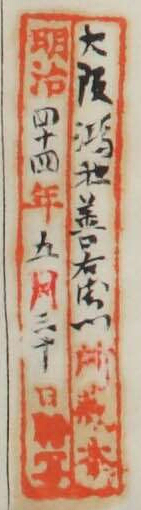 大阪鴻池善右衛門所藏本
明治四十四年五月三十日